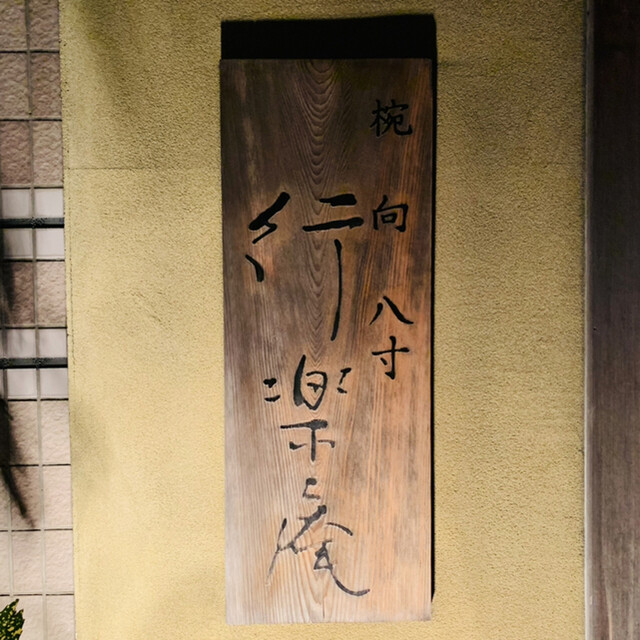 椀 向 八寸
行楽庵